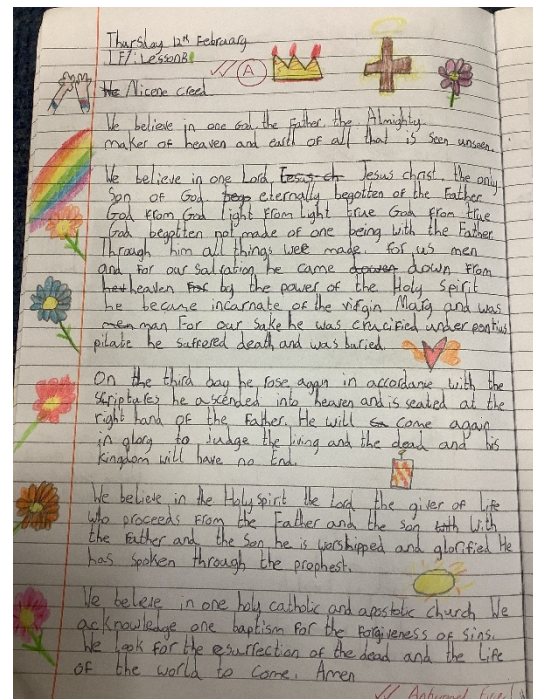 Thursday 12th February
LF/: Lesson 8
A
He Nicene Creed
We believe in one God the Father. the Almighty
maker of heaven and earth of all that is seen unseen.
We believe in one Lord Jesus ch Jesus christ. the only
Son of God. bego eternally begotten of the Father
God from God light from light true God from true
God begotten not made of one being with the Father
Through him all things wee made. for us men
and for our salvation he came dowen down from
heaven by the power of the Holy Spirit
he became incarnate of the virgin Mary and was
men man For our sake he was crucified under pontius
pilate he suffered death and was buried.
On the third day he rose again in accordanse with the
scriptures he ascended into heaven and is seated at the
right hand of the Father. He will come again
in glory to Judge the living and the dead and his
Kingdom will have no End.
We believe in the Holy spirit the Lord the giver of Life
who proceeds from the Father and the son with With
the Father and the Son he is worshipped and glorified He
has spoken through the prophest.
We beleve in one holy catholic and apostolic church We
acknowledge one baptism for the forgiveness of sins.
We look for the resurrection of the dead and the life
of the world to come. Amen